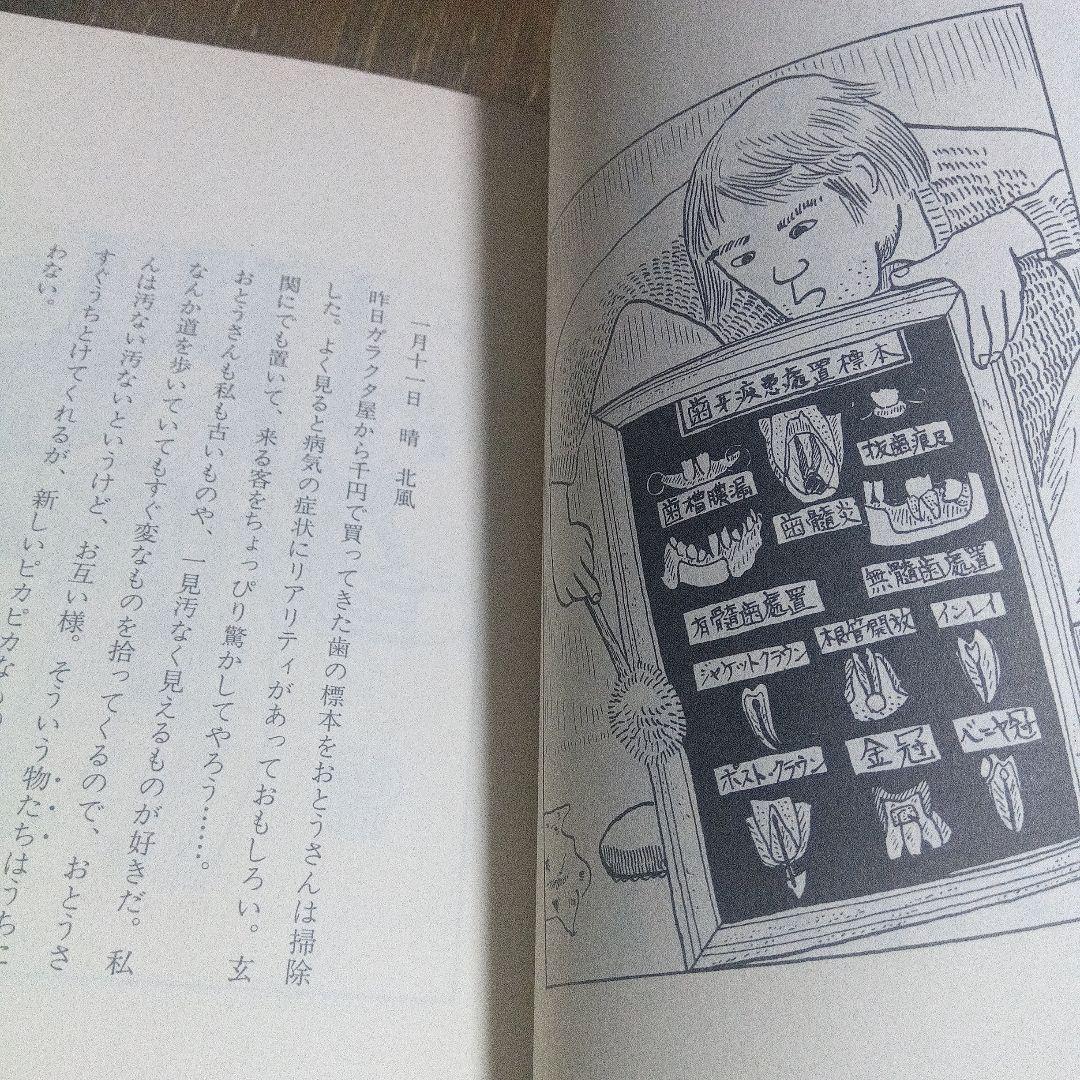 一月十一日　晴　北風
昨日ガラクタ屋から千円で買ってきた歯の標本をおとうさんは掃除
した。よく見ると病気の症状にリアリティがあっておもしろい。玄
関にでも置いて、来る客をちょっぴり驚かしてやろう……。
おとうさんも私も古いものや、一見汚なく見えるものが好きだ。私
なんか道を歩いていてもすぐ変なものを拾ってくるので、おとうさ
んは汚ない汚ないというけど、お互い様。そういう物たちはうちに
すぐうちとけてくれるが、新しいピカピカなもの
わない。
歯牙疾患處置標本
歯槽膿漏
歯髓炎
抜歯痕及
有髓歯處置
無髓歯處置
ジャケットクラウン
根管開放
インレイ
ポスト・クラウン
金冠
ベニヤ冠